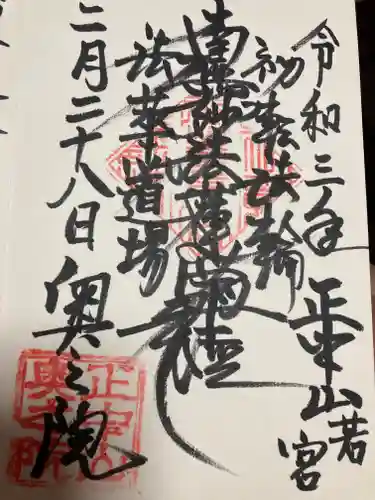 令和三年 正中山 若宮
初転法輪
南無妙法蓮華経
法華道場
二月二十八日 奥之院
正中山
奥之院